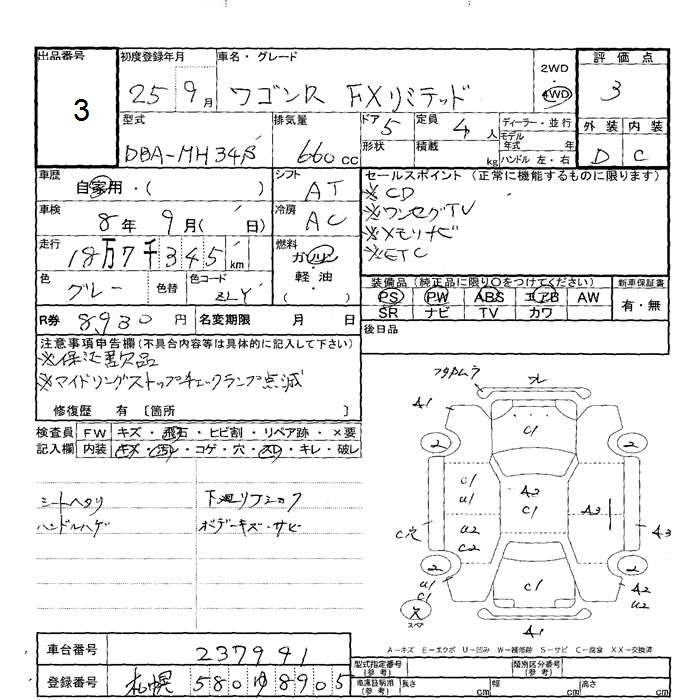 出品番号 初度登録年月 車名・グレード 評価点
3 25 9月 ワゴンR FXリミテッド 2WD 4WD 3
型式 排気量 ドア 5 定員 4人 ディーラー・並行 外装 内装
DBA-MH34S 660cc 形状 積載 kg モデル年式 年 ハンドル 左・右 D C
車歴 自家用・( ) シフト AT セールスポイント (正常に機能するものに限ります)
車検 8年 9月( 日) 冷房 AC ※CD
※ワンセグTV
走行 18万7千345km 燃料 ガソリン・軽油 ( ) ※メモリナビ
※ETC
色 グレー 色替 色コード ZLY 装備品 (純正品に限り○をつけてください) 新車保証書
PS PW ABS エアB AW 有・無
R券 8930円 名変期限 月 日 SR ナビ TV カワ
注意事項申告欄(不具合内容等は具体的に記入して下さい) 後日品
※保法書欠品
※アイドリングストップチェックランプ点滅
修復歴 有 〔箇所 〕
検査員 FW キズ・飛石・ヒビ割・リペア跡・×要
記入欄 内装 キズ・汚レ・コゲ・穴・スレ・キレ・破レ
シートヘタリ 下廻リフショク
ハンドルハゲ ボデーキズ・サビ
A1
C1
2 2
C1
U1
A2
C1
A3
A3
C穴
U2
C2
2 2
U1
C1
C1
A2
U2
スペア
A1
A-キズ E-エクボ U-凹み W-補修跡 S-サビ C-腐食 XX-交換済
車台番号 237941 型式指定番号(参考) 類別区分番号(参考)
登録番号 札幌 580 ゆ 8905 車庫証明用(参考) 長さ cm 幅 cm 高さ cm